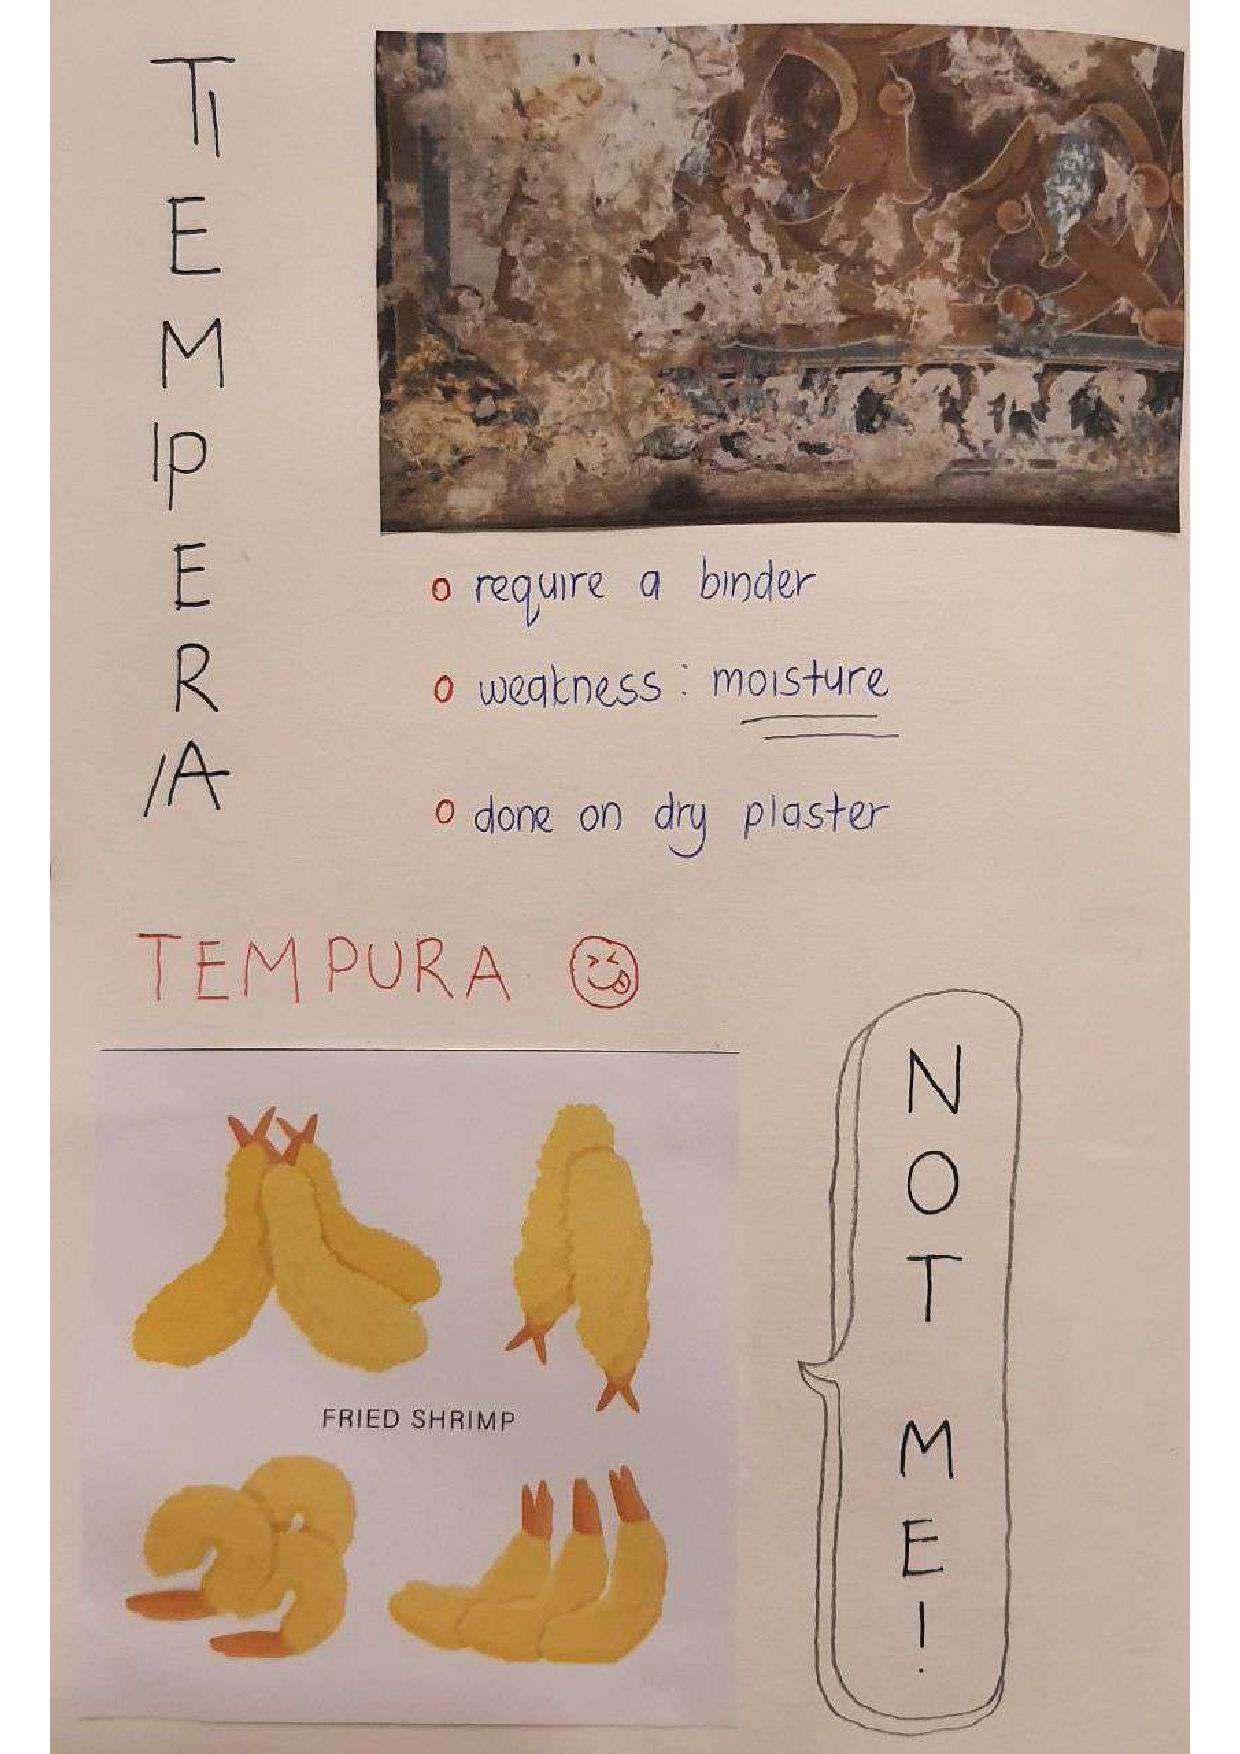 TEMPERA
o require a binder
o weakness : moisture
o done on dry plaster
TEMPURA
FRIED SHRIMP
NOT ME!